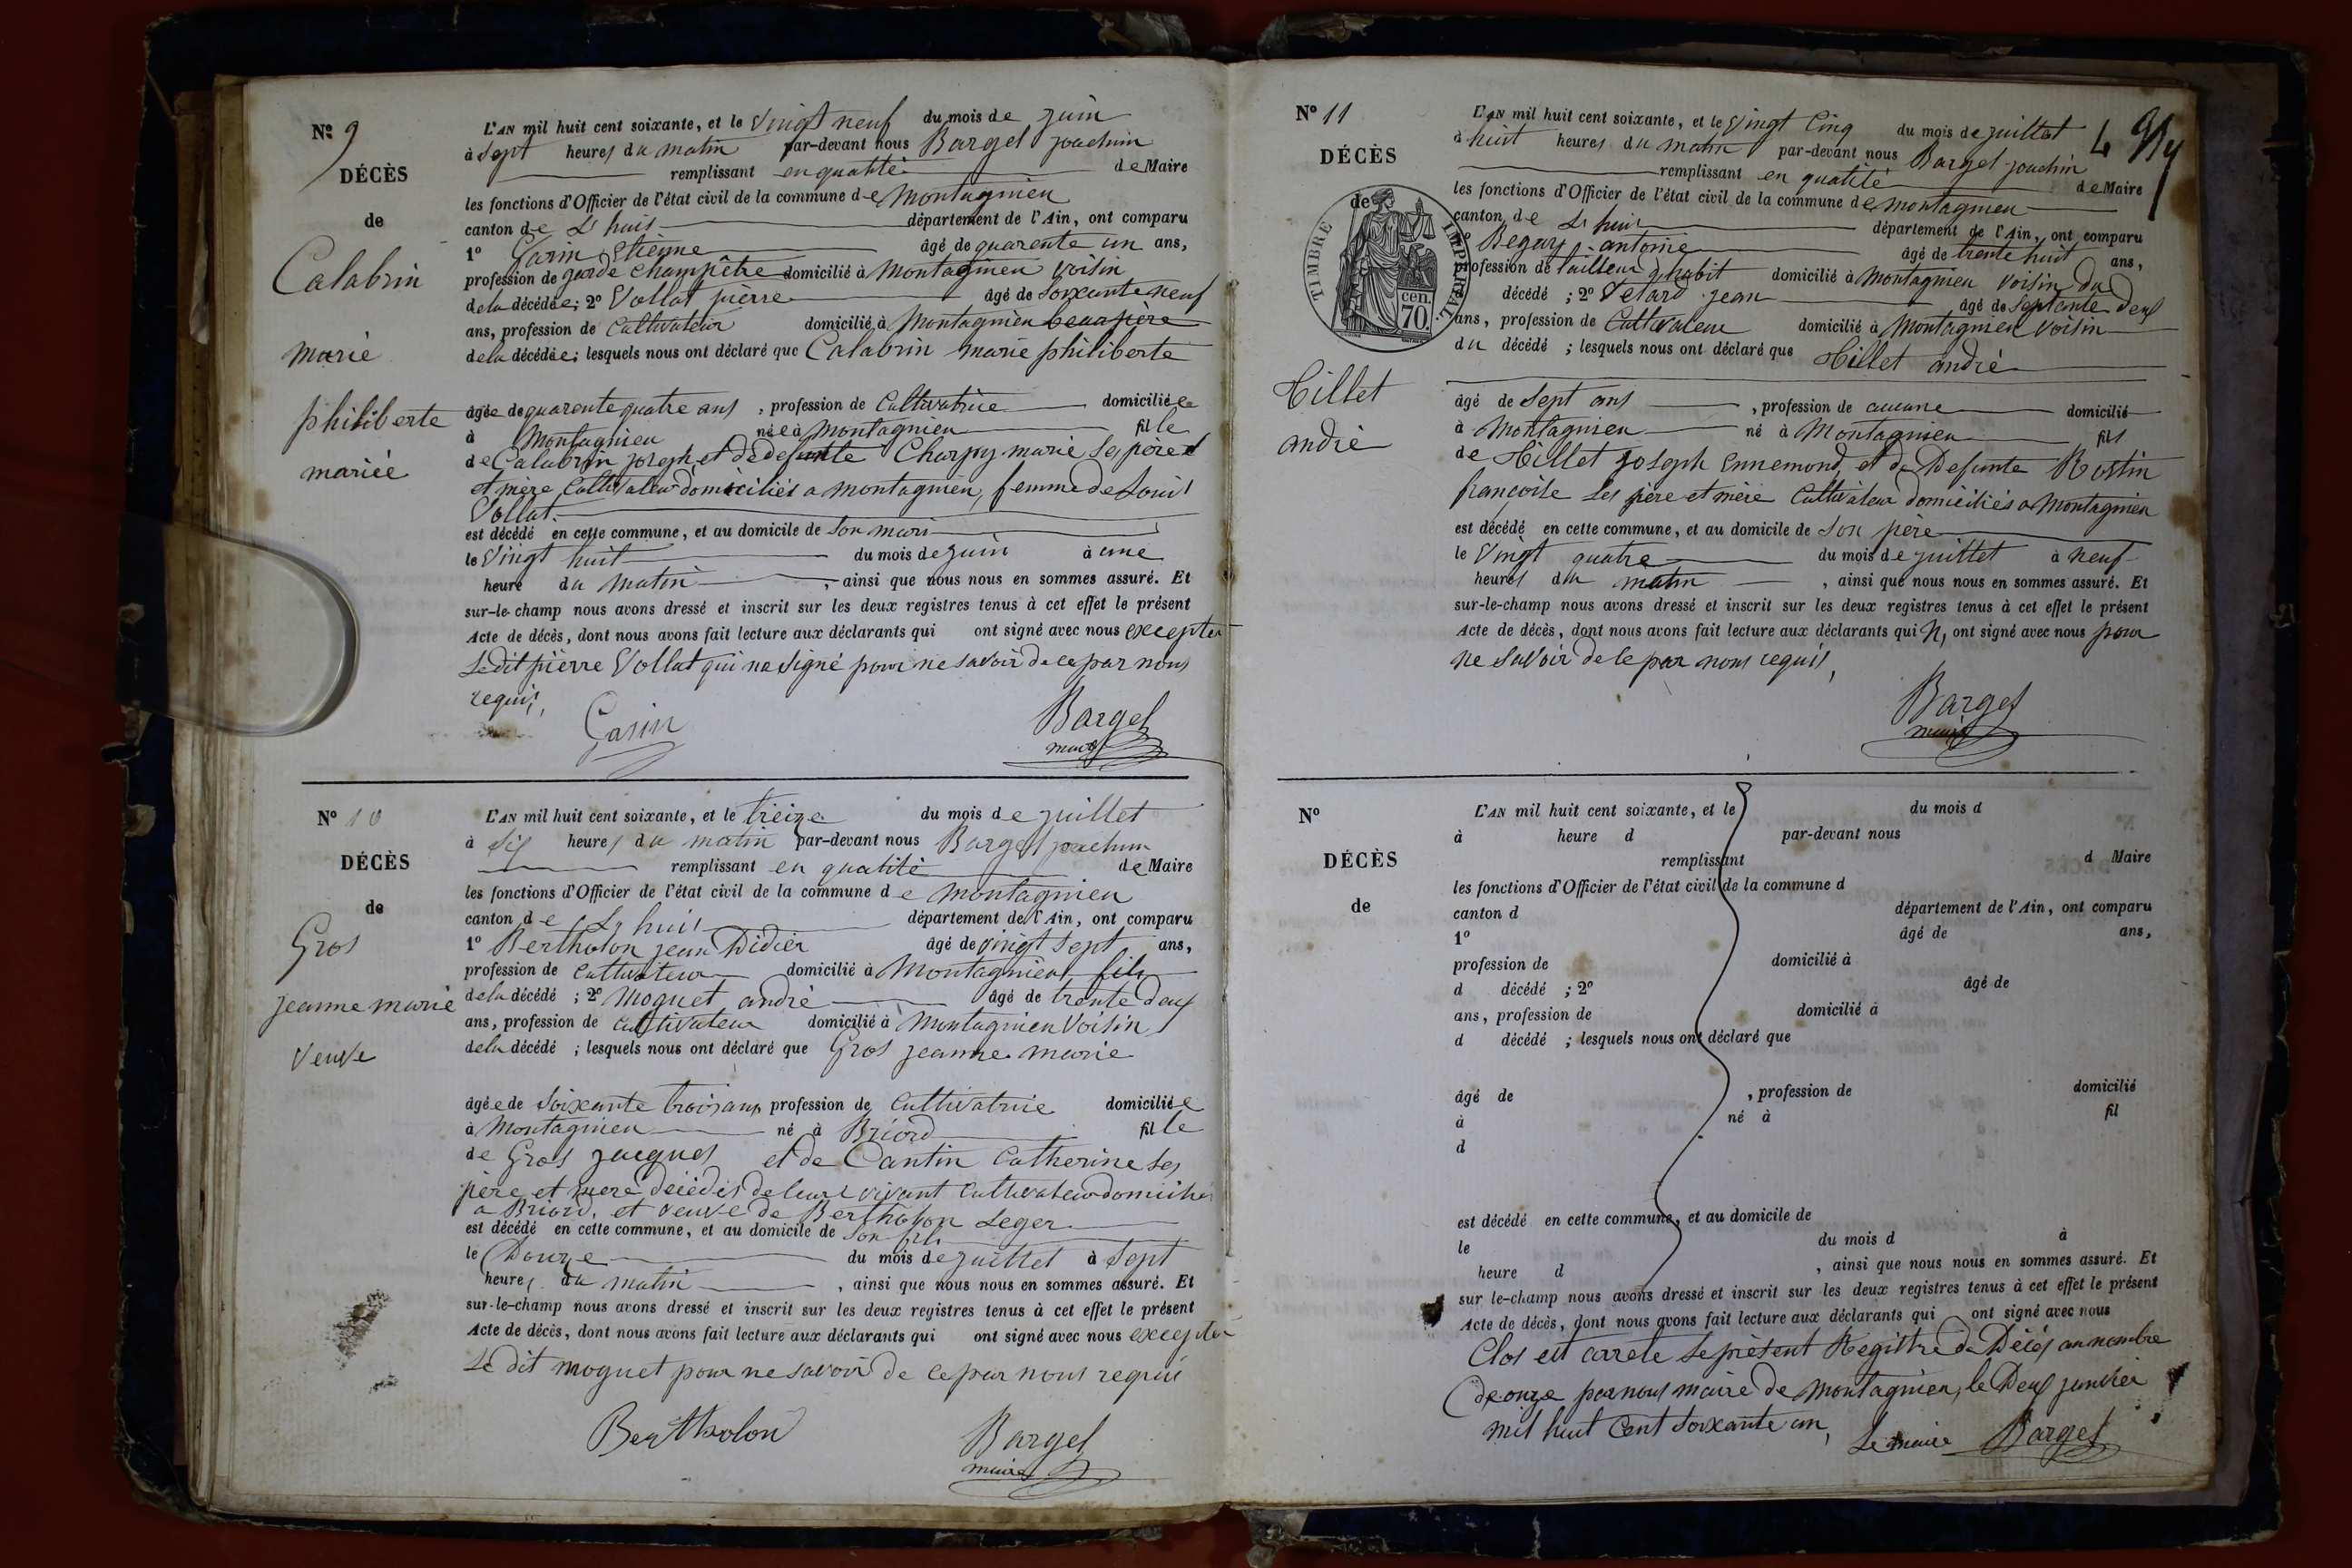 N° 9
DÉCÈS
de
Calabrin
marie
philiberte
mariée
L'AN mil huit cent soixante, et le Vingt neuf du mois de juin
à sept heures du matin par-devant nous Bargel joachim
remplissant en qualité de Maire
les fonctions d'Officier de l'état civil de la commune de Montagnieu
canton de L huis département de l'Ain, ont comparu
1° Garin Etienne âgé de quarente un ans,
profession de garde champêtre domicilié à Montagnieu voisin
de la décédée; 2° Vollat pierre âgé de soixante neuf
ans, profession de Cultivateur domicilié à Montagnieu beaupère
de la décédée; lesquels nous ont déclaré que Calabrin marie philiberte
âgée de quarente quatre ans, profession de Cultivatrice domiciliée
à Montagnieu née à Montagnieu fille
de Calabrin joseph et de defunte Charpy marie ses père
et mère Cultivateur domiciliés a montagnieu, femme de Louis
Vollat.
est décédé en cette commune, et au domicile de son mari
le Vingt huit du mois de juin à une
heure du matin, ainsi que nous nous en sommes assuré. Et
sur-le-champ nous avons dressé et inscrit sur les deux registres tenus à cet effet le présent
Acte de décès, dont nous avons fait lecture aux déclarants qui ont signé avec nous excepter
Ledit pierre Vollat qui na signé pour ne savoir de ce par nous
requis,
Garin
Bargel
maire
N° 10
DÉCÈS
de
Gros
jeanne marie
veuve
L'AN mil huit cent soixante, et le treize du mois de juillet
à six heures du matin par-devant nous Bargel joachim
remplissant en qualité de Maire
les fonctions d'Officier de l'état civil de la commune de montagnieu
canton de L huis département de l'Ain, ont comparu
1° Bertholon jean Didier âgé de vingt sept ans,
profession de cultivateur domicilié à Montagnieu fils
de la décédé; 2° Moguet andré âgé de trente deux
ans, profession de cultivateur domicilié à Montagnieu Voisin
de la décédé; lesquels nous ont déclaré que Gros jeanne marie
âgée de soixante trois ans profession de cultivatrice domiciliée
à Montagnieu né à Briord fille
de Gros jacques et de Cantin Catherine ses
père et mere décédés de leurs vivant cultivateur domicilies
a Briord, et veuve de Bertholon Leger
est décédé en cette commune, et au domicile de son fils
le Douze du mois de juillet à sept
heures du matin, ainsi que nous nous en sommes assuré. Et
sur-le-champ nous avons dressé et inscrit sur les deux registres tenus à cet effet le présent
Acte de décès, dont nous avons fait lecture aux déclarants qui ont signé avec nous excepter
Le dit moguet pour ne savoir de ce par nous requis
Bertholon
Bargel
maire
N° 11
DÉCÈS
de
TIMBRE IMPÉRIAL
cen.
70.
Hillet
andré
L'AN mil huit cent soixante, et le vingt Cinq du mois de juillet
à huit heures du matin par-devant nous Bargel joachim
remplissant en qualité de Maire
les fonctions d'Officier de l'état civil de la commune de montagnieu
canton de L huis département de l'Ain, ont comparu
antoine âgé de trente huit ans,
profession de tailleur d'habit domicilié à Montagnieu voisin du
décédé; 2° jean âgé de septante deux
ans, profession de Cultivateur domicilié à Montagnieu voisin
du décédé; lesquels nous ont déclaré que Hillet andré
âgé de sept ans, profession de aucune domicilié
à Montagnieu né à Montagnieu fils
de Hillet joseph Ennemond, et de Defunte Rostin
françoise ses père et mère Cultivateur domiciliés a Montagnieu
est décédé en cette commune, et au domicile de son père
le Vingt quatre du mois de juillet à neuf
heures du matin, ainsi que nous nous en sommes assuré. Et
sur-le-champ nous avons dressé et inscrit sur les deux registres tenus à cet effet le présent
Acte de décès, dont nous avons fait lecture aux déclarants qui n, ont signé avec nous pour
ne savoir de ce par nous requis,
Bargel
maire
N°
DÉCÈS
de
L'AN mil huit cent soixante, et le du mois d
à heure d par-devant nous
remplissant d Maire
les fonctions d'Officier de l'état civil de la commune d
canton d département de l'Ain, ont comparu
1° âgé de ans,
profession de domicilié à
d décédé; 2° âgé de
ans, profession de domicilié à
d décédé; lesquels nous ont déclaré que
âgé de, profession de domicilié
à né à fil
d
est décédé en cette commune, et au domicile de
le du mois d à
heure d, ainsi que nous nous en sommes assuré. Et
sur le-champ nous avons dressé et inscrit sur les deux registres tenus à cet effet le présent
Acte de décès, dont nous avons fait lecture aux déclarants qui ont signé avec nous
Clos est arrete le présent Registre de Décès au nombre
de onze par nous maire de Montagnieu, le Deux janvier
mil huit Cent soixante un, Le maire Bargel